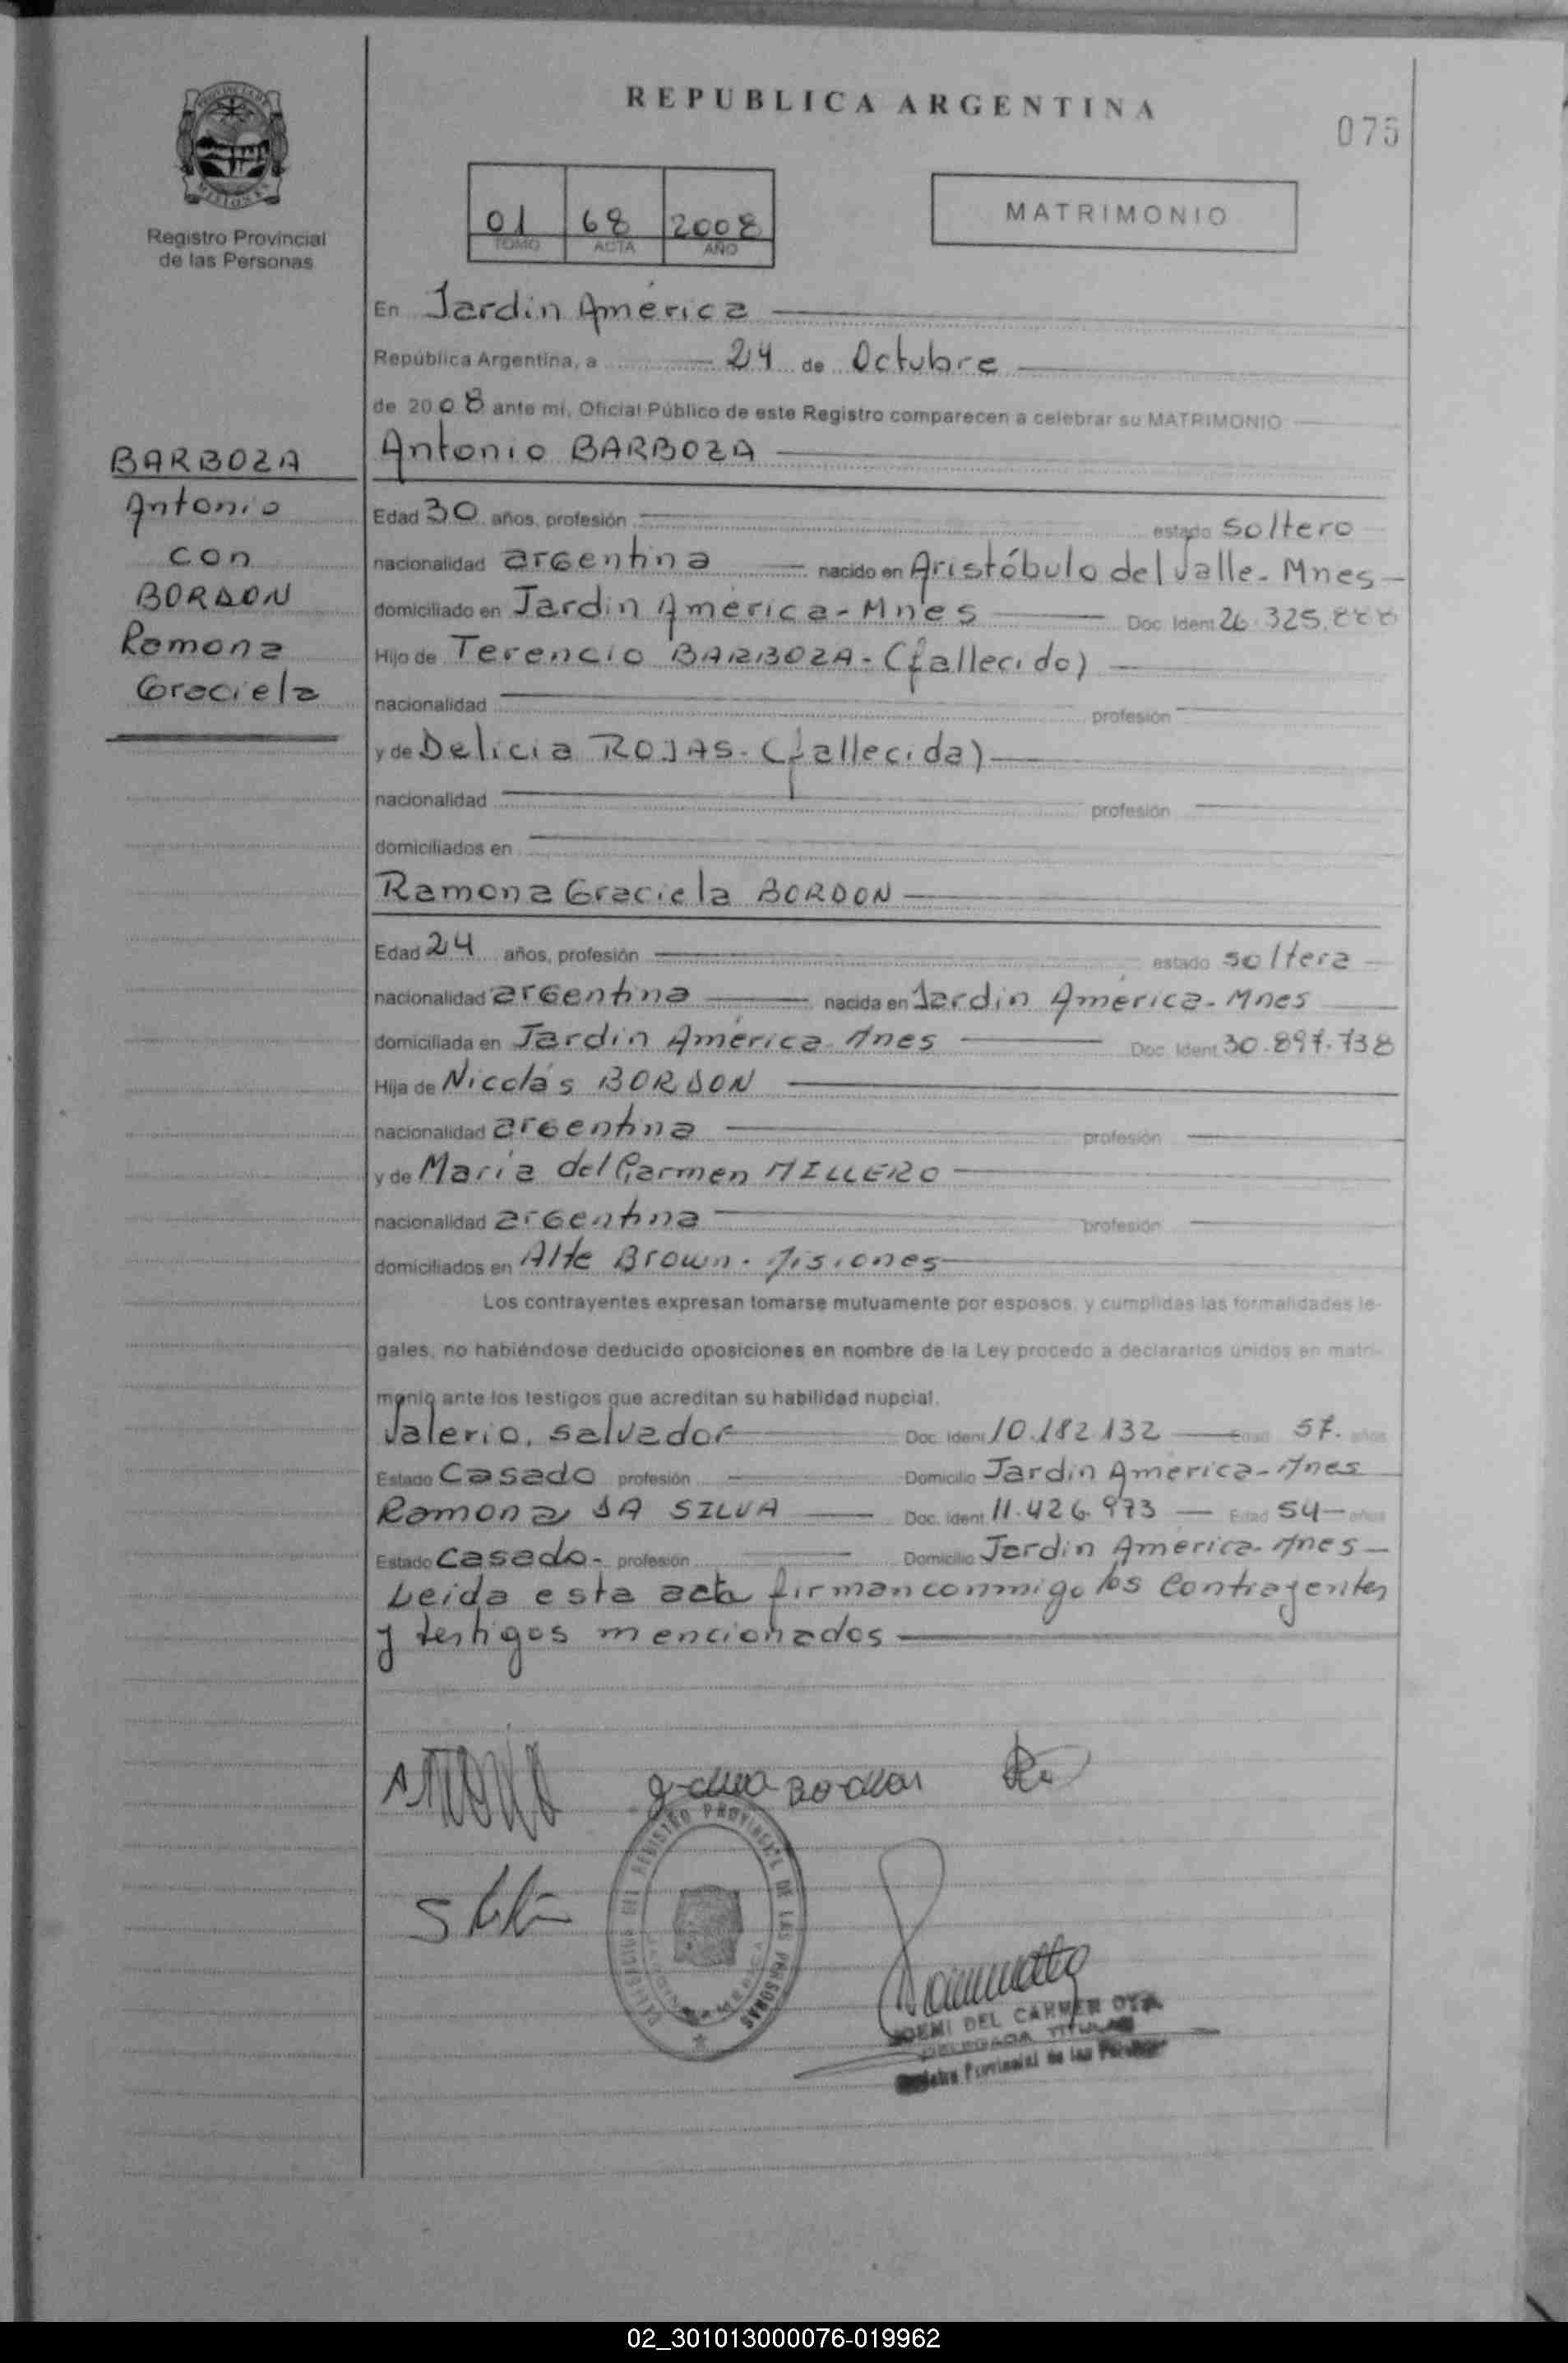 REPUBLICA ARGENTINA
075
Registro Provincial
de las Personas
01 68 2008
TOMO ACTA AÑO
MATRIMONIO
En Jardín América
República Argentina, a 24 de Octubre
de 2008 ante mi, Oficial Público de este Registro comparecen a celebrar su MATRIMONIO
BARBOZA
Antonio
con
BORDON
Ramona
Graciela
Antonio BARBOZA
Edad 30 años, profesión estado soltero
nacionalidad argentina nacido en Aristóbulo del Valle - Mnes
domiciliado en Jardín América - Mnes Doc. Ident 26.325.888
Hijo de Terencio BARBOZA - (fallecido)
nacionalidad profesión
y de Delicia ROJAS - (fallecida)
nacionalidad profesión
domiciliados en
Ramona Graciela BORDON
Edad 24 años, profesión estado soltera
nacionalidad argentina nacida en Jardín América - Mnes
domiciliada en Jardín América Mnes Doc. Ident 30.897.738
Hija de Nicolás BORDON
nacionalidad argentina profesión
y de María del Carmen MILLERO
nacionalidad argentina profesión
domiciliados en Alte Brown - Misiones
Los contrayentes expresan tomarse mutuamente por esposos, y cumplidas las formalidades le-
gales, no habiéndose deducido oposiciones en nombre de la Ley procedo a declararlos unidos en matri-
monio ante los testigos que acreditan su habilidad nupcial.
Valerio, Salvador Doc. Ident 10.182.132 Edad 57 años
Estado Casado profesión Domicilio Jardín América - Mnes
Ramona DA SILVA Doc. Ident. 11.426.973 Edad 54 años
Estado Casado - profesión Domicilio Jardín América - Mnes
Leida esta acta firman conmigo los Contrayentes
y testigos mencionados
REGISTRO PROVINCIAL DE LAS PERSONAS
DEL CARMEN
DELEGADA TITULAR
Registro Provincial de las Personas
02_301013000076-019962